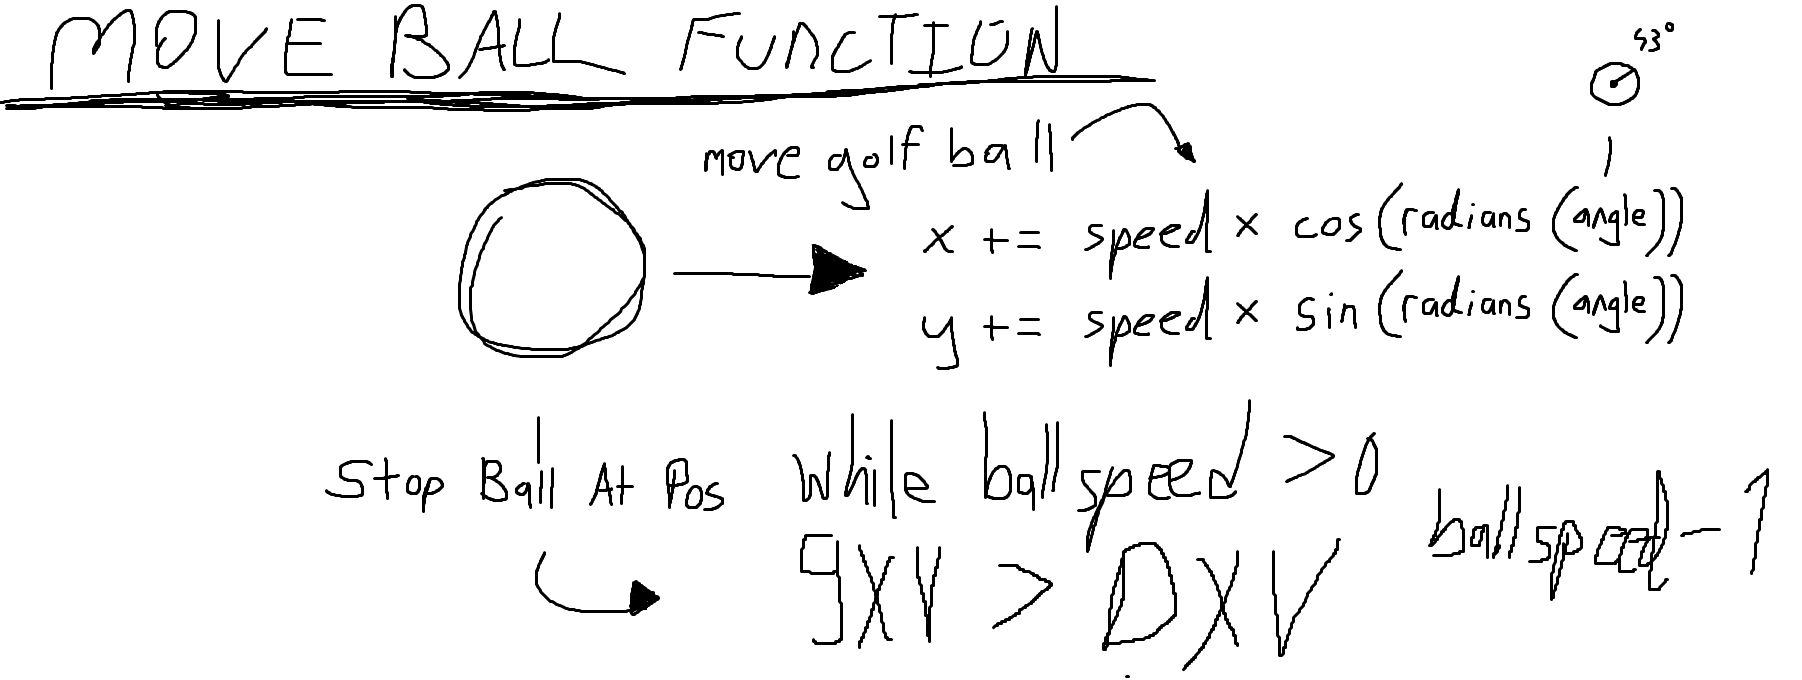 MOVE BALL FUNCTION
53°
move golf ball
x += speed × cos(radians(angle))
y += speed × sin(radians(angle))
Stop Ball At Pos
While ballspeed > 0
ballspeed - 1
gXV > DXV